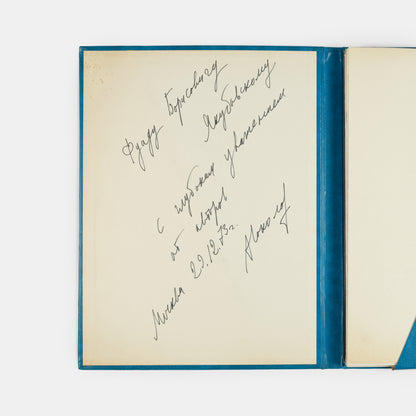 Фуару Борисовичу
Якубовскому
с глубоким уважением
от авторов
Москва 29.12.73г.